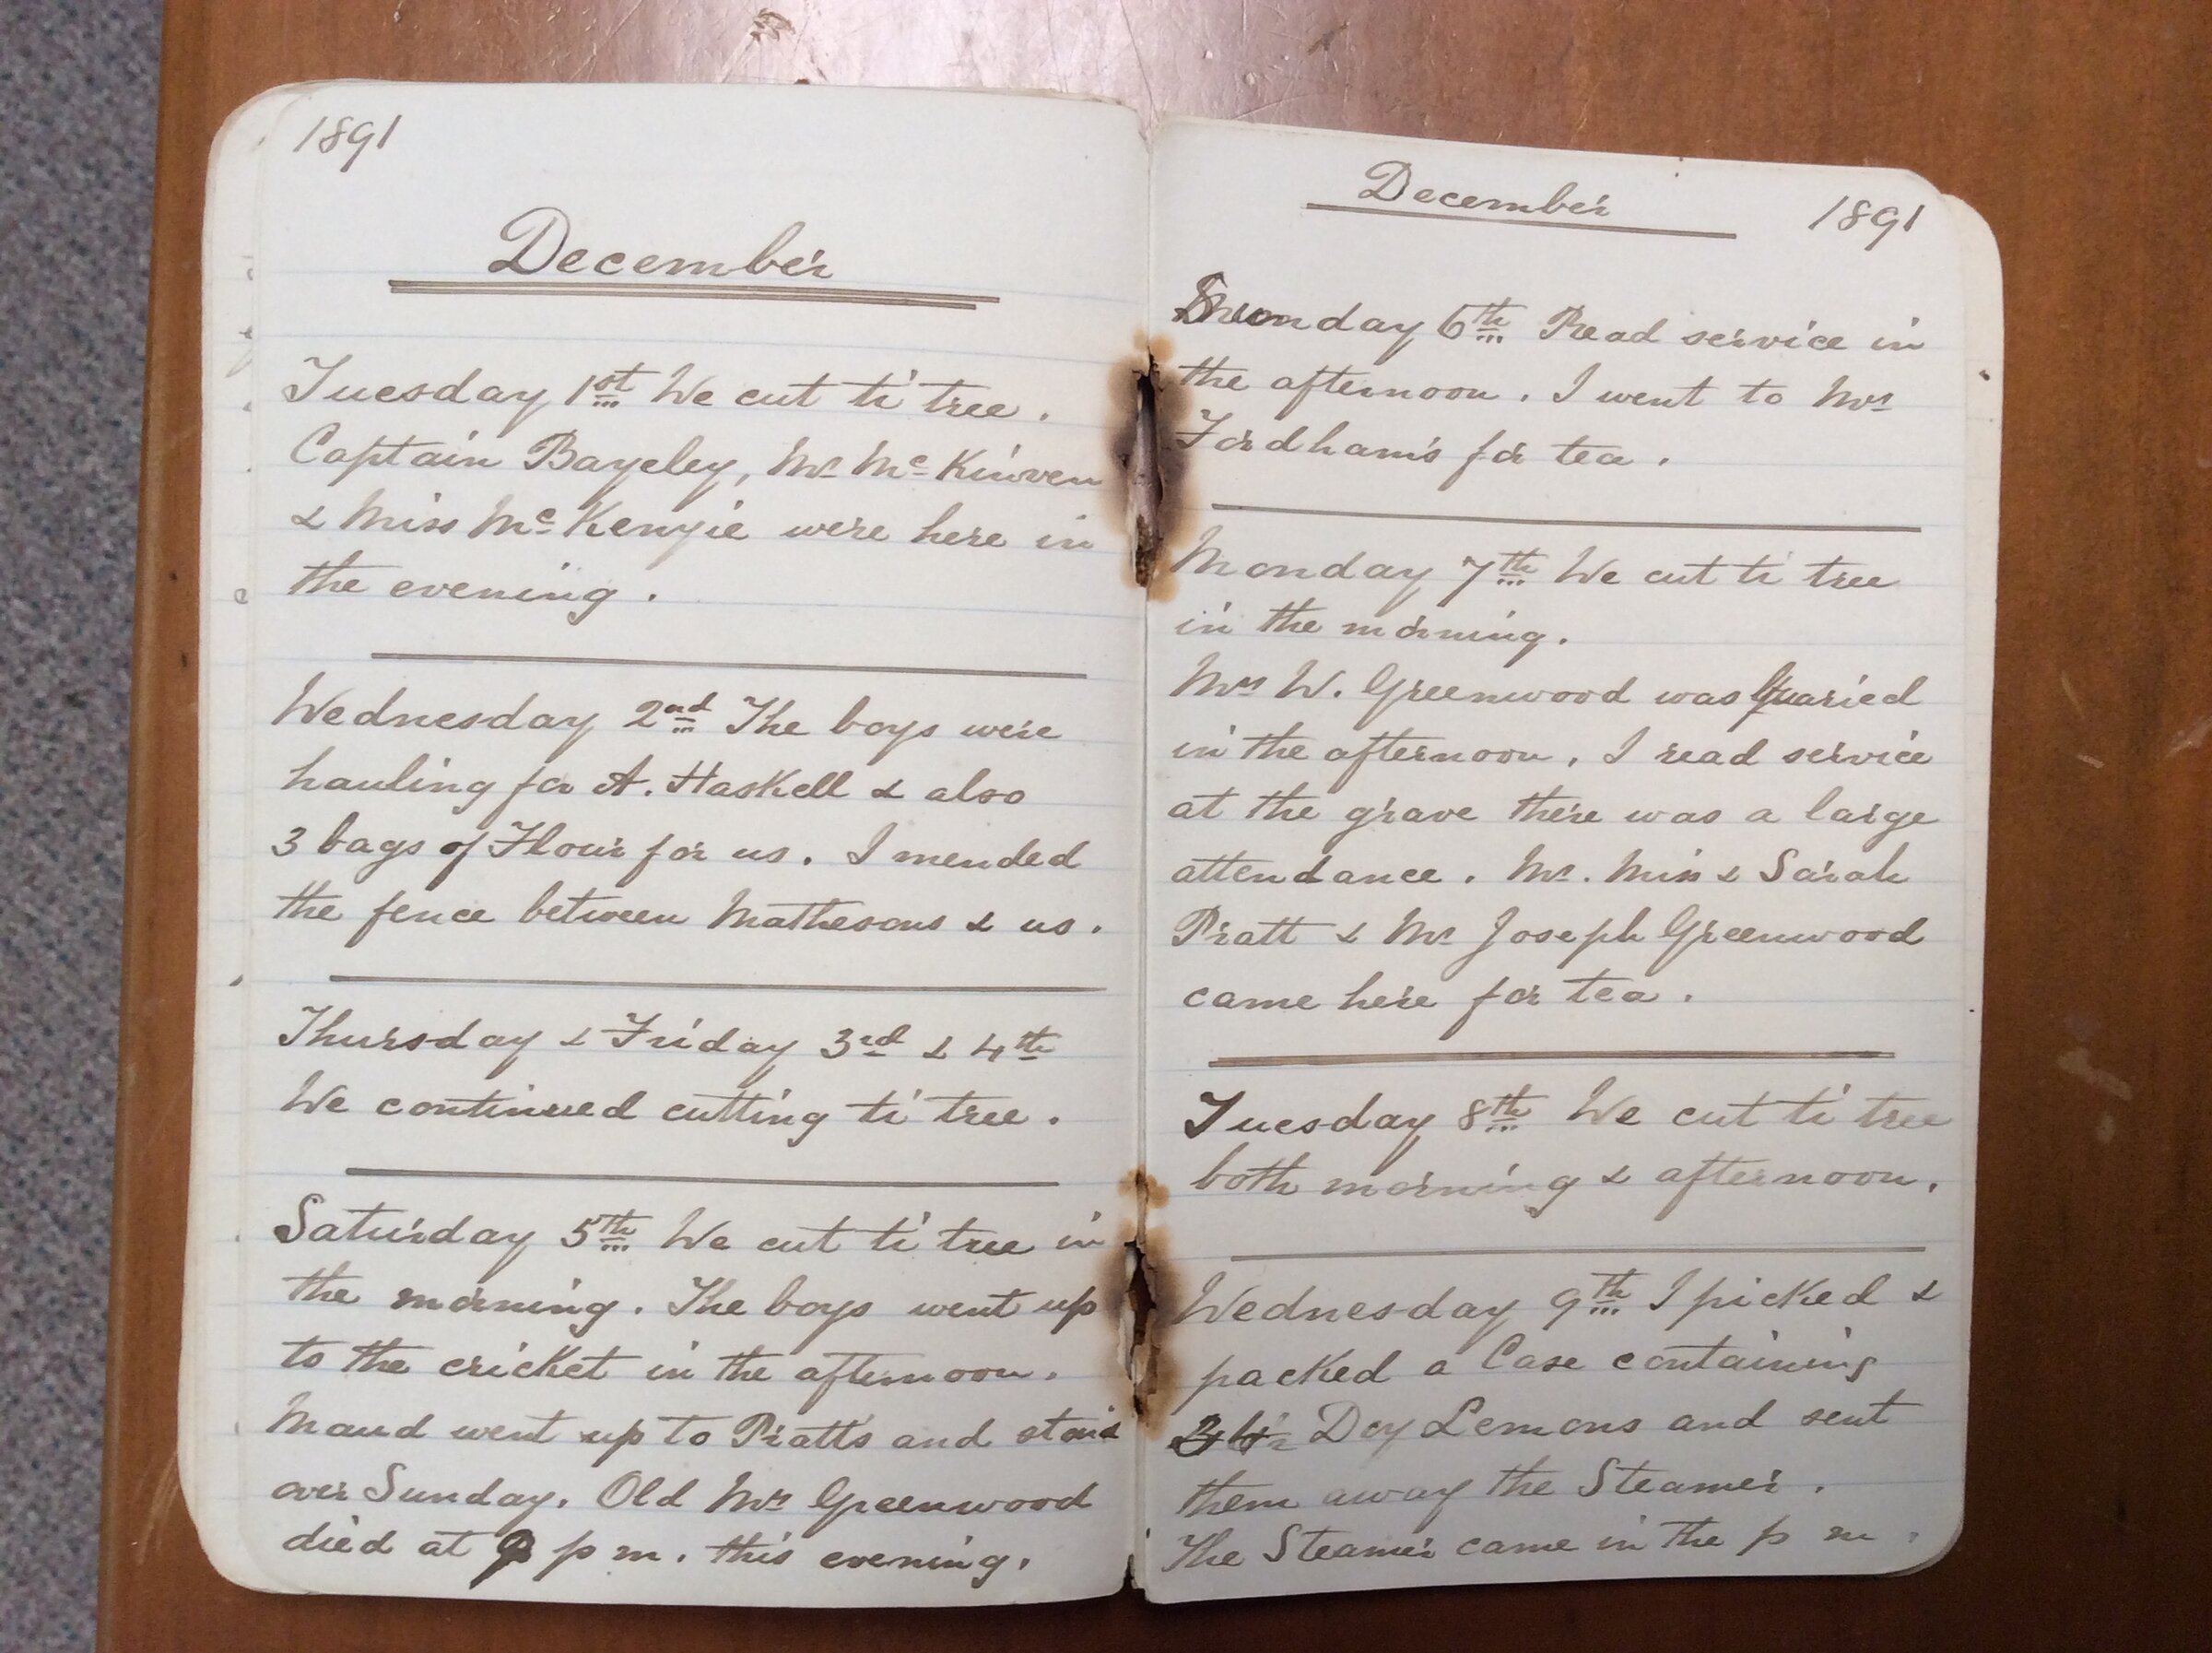 1891
December
Tuesday 1st We cut ti tree.
Captain Bayeley, Mr McKinven
& Miss McKenzie were here in
the evening.
Wednesday 2nd The boys were
hauling for A. Haskell & also
3 bags of Flour for us. I mended
the fence between Mathesons & us.
Thursday & Friday 3rd & 4th
We continued cutting ti tree.
Saturday 5th We cut ti tree in
the morning. The boys went up
to the cricket in the afternoon.
Maud went up to Pratts and staid
over Sunday. Old Mrs Greenwood
died at 9 p m. this evening.
December 1891
Sunday 6th Read service in
the afternoon. I went to Mrs
Fordham's for tea.
Monday 7th We cut ti tree
in the morning.
Mrs W. Greenwood was
in the afternoon. I read service
at the grave there was a large
attendance. Mr. Miss & Sarah
Pratt & Mr Joseph Greenwood
came here for tea.
Tuesday 8th We cut ti tree
both morning & afternoon.
Wednesday 9th I picked &
packed a Case containing
Doz Lemons and sent
them away the Steamer.
The Steamer came in the p m.